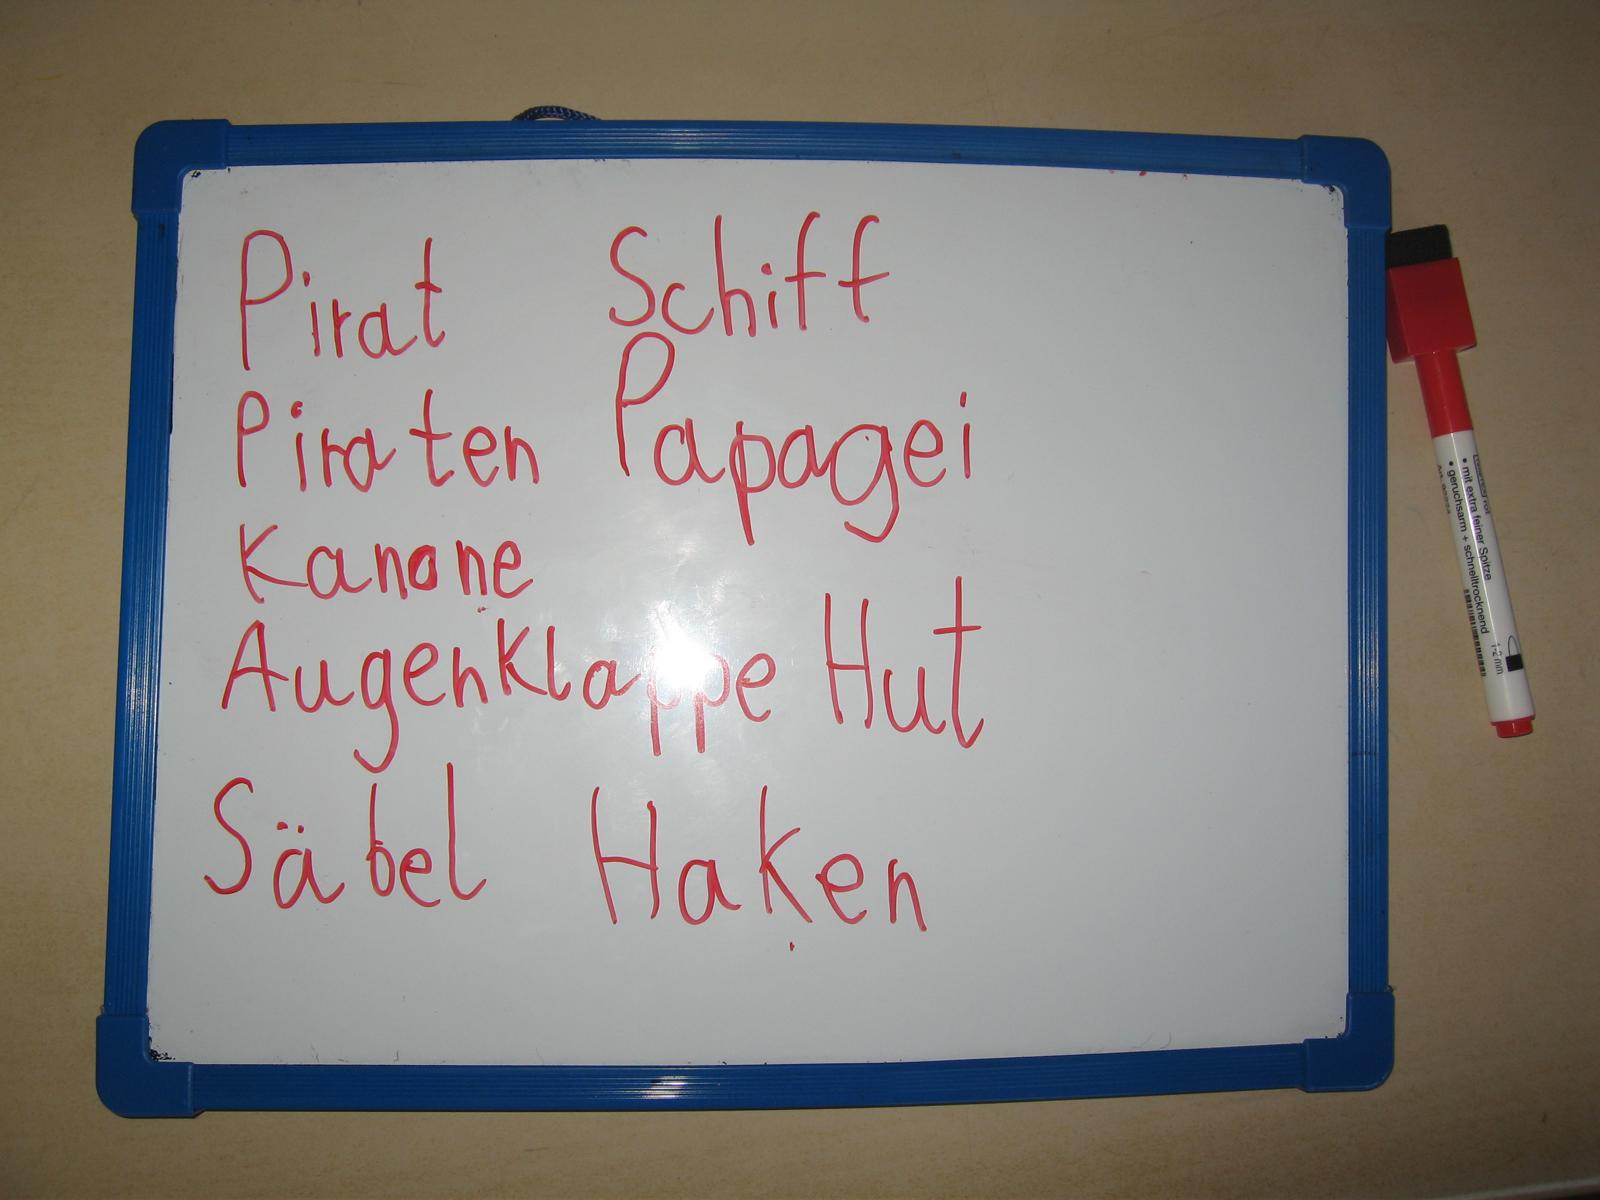 Pirat Schiff
Piraten Papagei
Kanone
Augenklappe Hut
Säbel Haken
• mit extra feiner Spitze
• geruchsarm + schnelltrocknend
1-2 mm